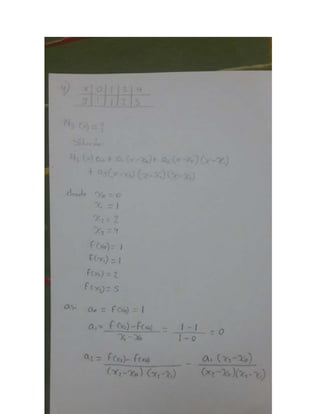 4) x 0 1 2 4
y 1 1 2 5
N₃(x) = ?
Solución
N₃(x) = a₀ + a₁(x-x₀) + a₂(x-x₀)(x-x₁)
+ a₃(x-x₀)(x-x₁)(x-x₂)
donde x₀ = 0
x₁ = 1
x₂ = 2
x₃ = 4
f(x₀) = 1
f(x₁) = 1
f(x₂) = 2
f(x₃) = 5
así a₀ = f(x₀) = 1
a₁ = f(x₁) - f(x₀) / x₁ - x₀ = 1 - 1 / 1 - 0 = 0
a₂ = f(x₂) - f(x₀) / (x₂-x₀)(x₂-x₁) - a₁(x₂-x₀) / (x₂-x₀)(x₂-x₁)